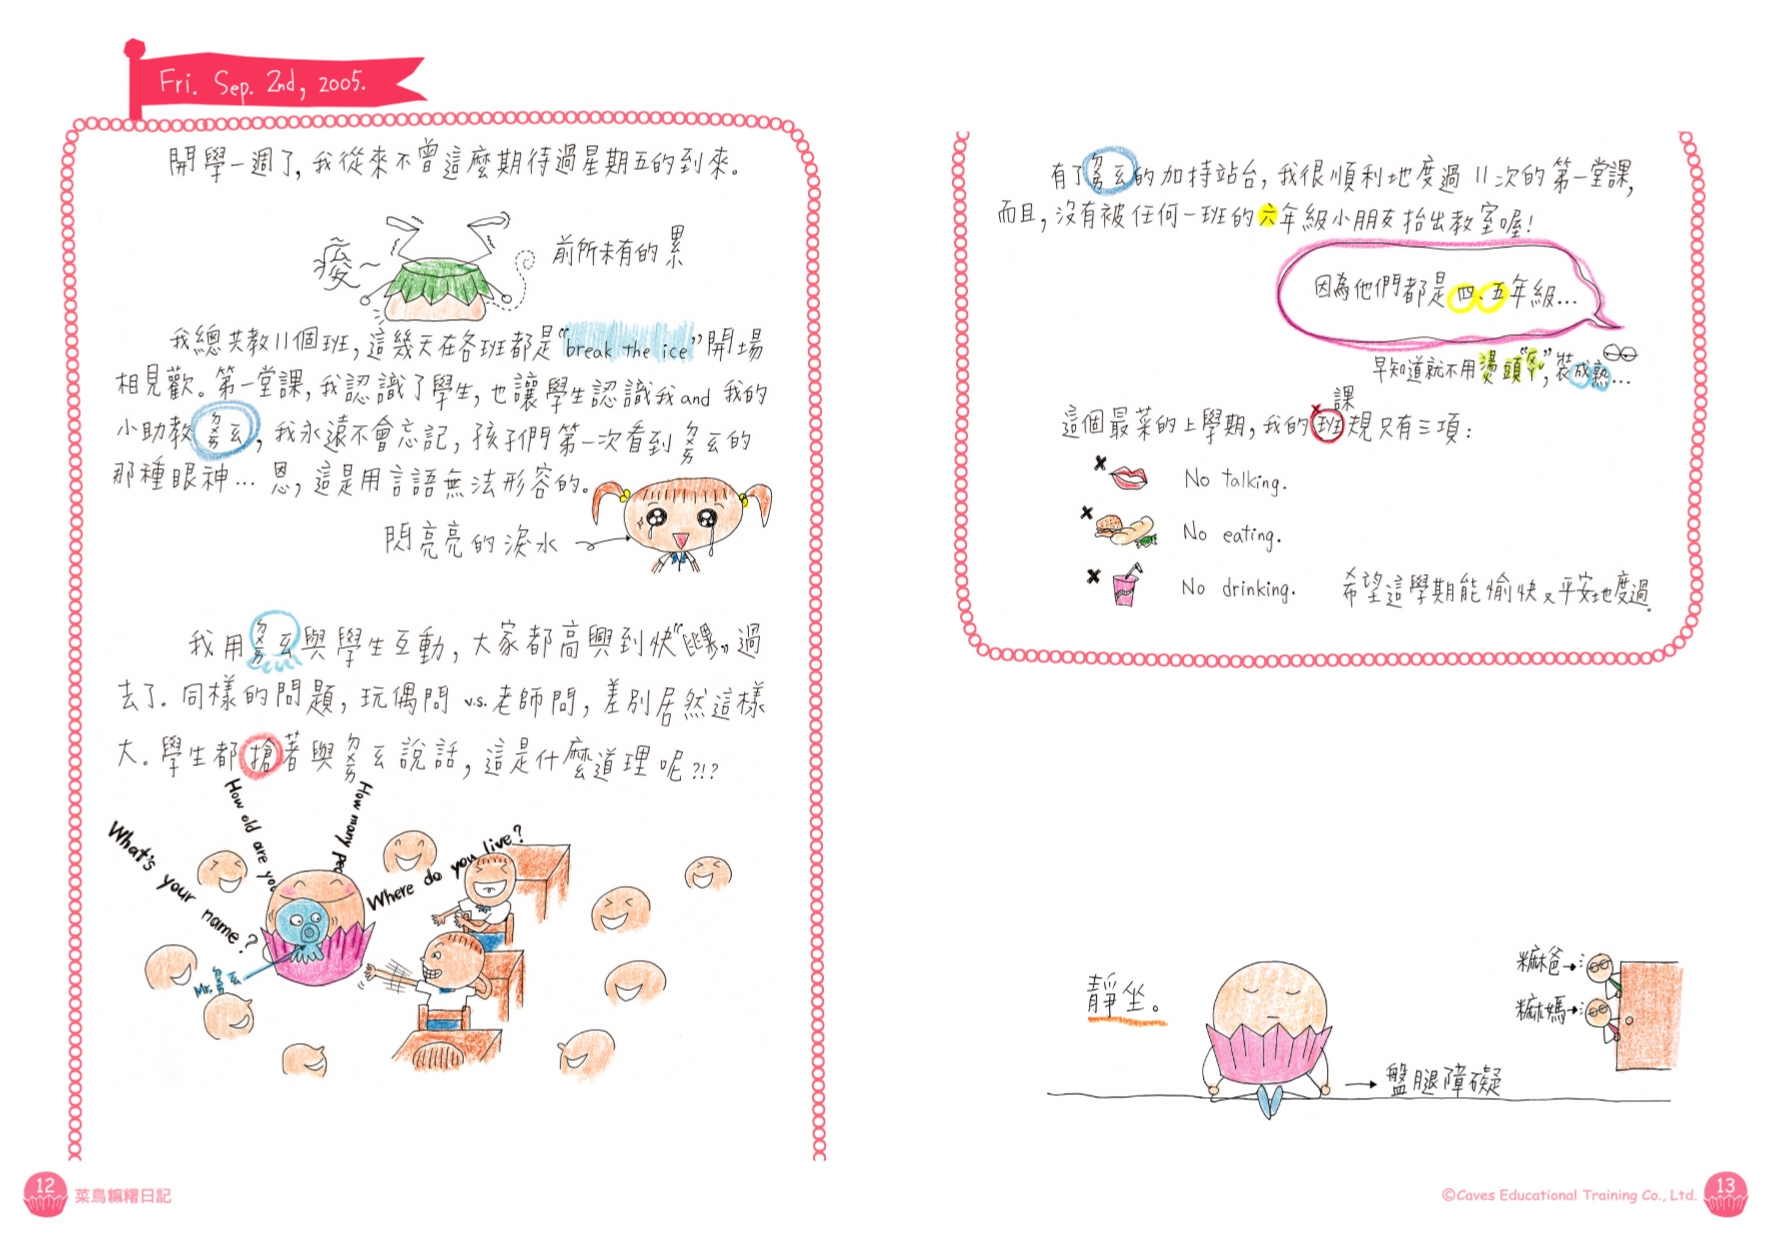 Fri. Sep. 2nd, 2005.
開學一週了，我從來不曾這麼期待過星期五的到來。
痠～
前所未有的累
我總共教11個班，這幾天在各班都是“break the ice”開場
相見歡。第一堂課，我認識了學生，也讓學生認識我and 我的
小助教ㄅㄨㄞ，我永遠不會忘記，孩子們第一次看到
那種眼神… 恩，這是用言語無法形容的。
閃亮亮的淚水
我用
與學生互動，大家都高興到快“ ”過
去了。同樣的問題，玩偶問 v.s. 老師問，差別居然這樣
大。學生都搶著與
說話，這是什麼道理呢?!?
What's your name?
How old are you
How many peo
Where do you live?
Mr.
12
菜鳥糜糬日記
有了
的加持站台，我很順利地度過 11次的第一堂課，
而且，沒有被任何一班的六年級小朋友抬出教室喔!
因為他們都是四、五年級…
早知道就不用燙頭“ㄘㄟ”，裝成熟…
課
這個最菜的上學期，我的班規只有三項：
No talking.
No eating.
No drinking.
希望這學期能愉快又平安地度過.
靜坐。
盤腿障礙
糜爸
糜媽
©Caves Educational Training Co., Ltd.
13